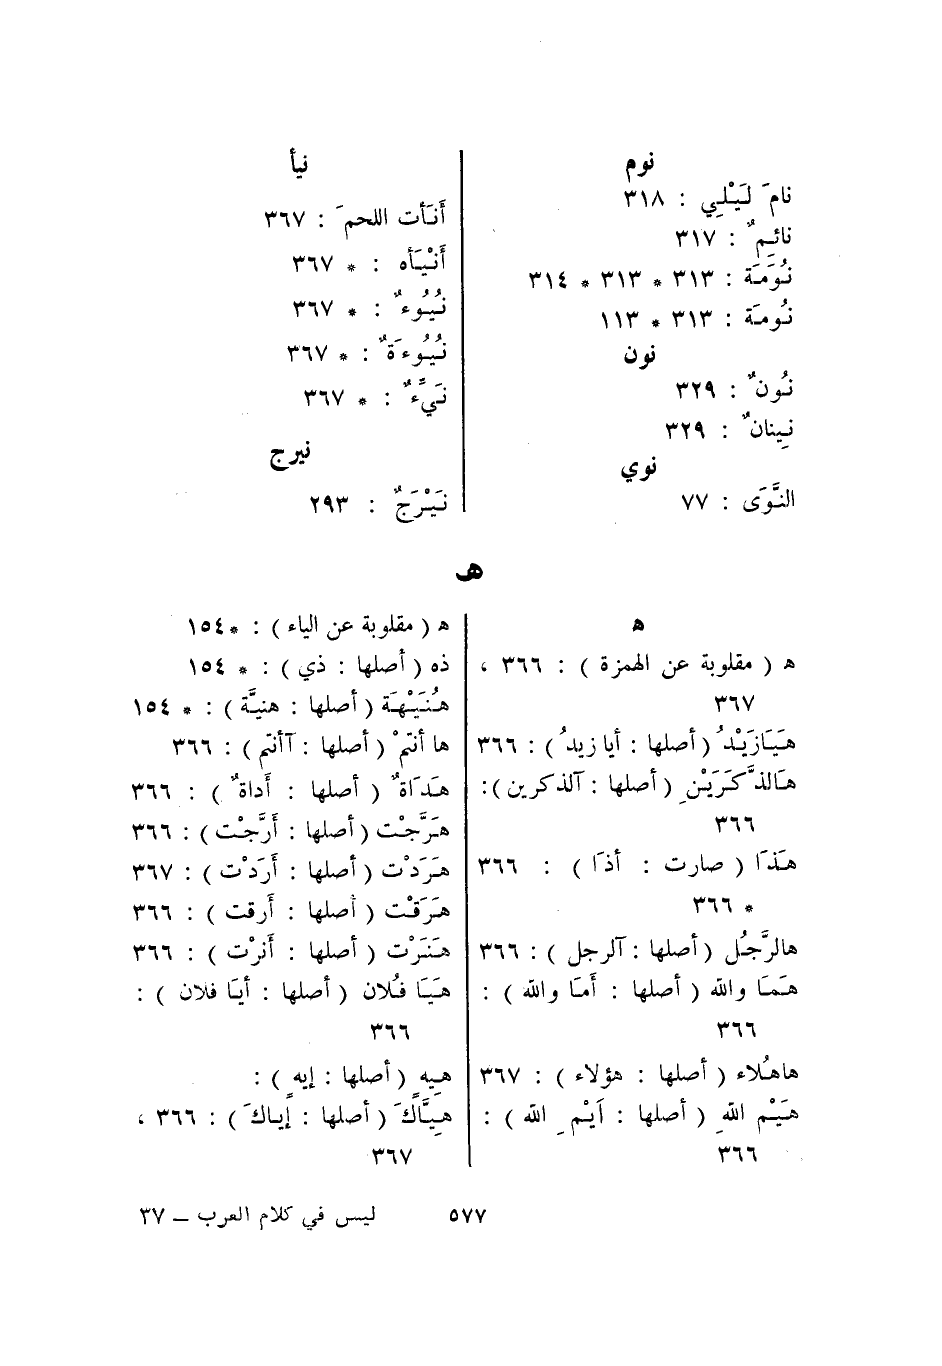 نوم
نامَ لَيْلِي : ٣١٨
نائِمٌ : ٣١٧
نُوَمَة : ٣١٣ * ٣١٣ * ٣١٤
نُومَة : ٣١٣ * ١١٣
نون
نُونٌ : ٣٢٩
نِينانٌ : ٣٢٩
نوي
النَّوَى : ٧٧
نيأ
أَنَأت اللحمَ : ٣٦٧
أَنْيَأه : * ٣٦٧
نُيُوءٌ : * ٣٦٧
نُيُوءَةٌ : * ٣٦٧
نَيِّءٌ : * ٣٦٧
نيرج
نَيْرَجٌ : ٢٩٣
هـ
ه
ه ( مقلوبة عن الهمزة ) : ٣٦٦ ،
٣٦٧
هَيَازَيْدُ ( أصلها : أيا زيدُ ) : ٣٦٦
هَالذَّكَرَيْنِ ( أصلها : آلذكرين ) :
٣٦٦
هَذَا ( صارت : أذَا ) : ٣٦٦
* ٣٦٦
هالرَّجُل ( أصلها : آلرجل ) : ٣٦٦
هَمَا والله ( أصلها : أَمَا والله ) :
٣٦٦
هاهُلاء ( أصلها : هؤلاء ) : ٣٦٧
هَيْمِ اللهِ ( أصلها : اَيْمِ الله ) :
٣٦٦
ه ( مقلوبة عن الياء ) : * ١٥٤
ذه ( أصلها : ذي ) : * ١٥٤
هُنَيْهَة ( أصلها : هنيَّة ) : * ١٥٤
ها أنتمْ ( أصلها : آأنتم ) : ٣٦٦
هَدَاةٌ ( أصلها : أَداةٌ ) : ٣٦٦
هَرَّجْت ( أصلها : أَرَّجْت ) : ٣٦٦
هَرَدْت ( أصلها : أَرَدْت ) : ٣٦٧
هَرَقْت ( أصلها : أَرقت ) : ٣٦٦
هَنَرْت ( أصلها : أَنرْت ) : ٣٦٦
هَيَا فُلان ( أصلها : أيَا فلان ) :
٣٦٦
هِيهٍ ( أصلها : إيهٍ ) :
هِيَّاكَ ( أصلها : إياكَ ) : ٣٦٦ ،
٣٦٧
٥٧٧
ليس في كلام العرب ــ ٣٧